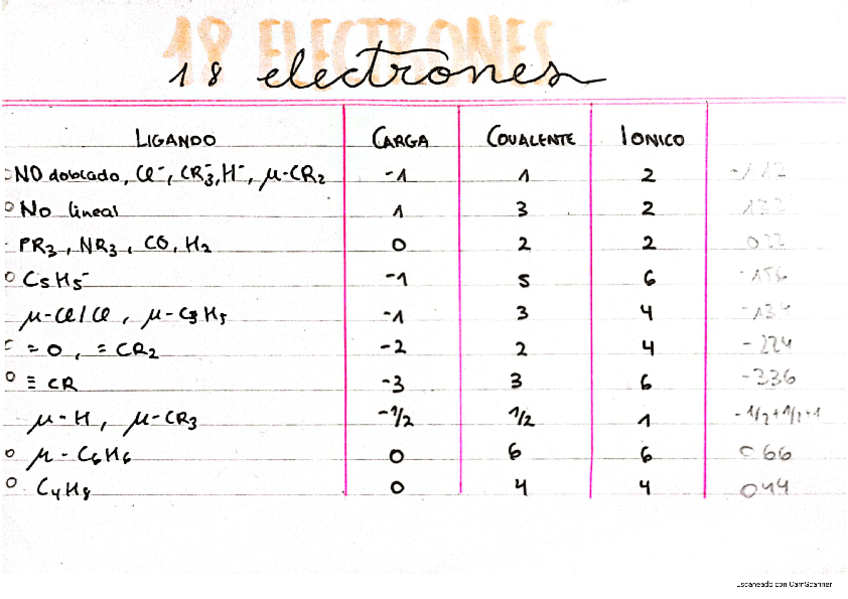 18 ELECTRONES
18 electrones
LIGANDO CARGA COVALENTE IONICO
NO doblado, Cl⁻, CR₃⁻, H⁻, μ-CR₂ -1 1 2 -112
No lineal 1 3 2 132
PR₃, NR₃, CO, H₂ 0 2 2 022
C₅H₅⁻ -1 5 6 -156
μ-Cl/Cl, μ-C₃H₅ -1 3 4 -134
=O, =CR₂ -2 2 4 -224
≡CR -3 3 6 -336
μ-H, μ-CR₃ -1/2 1/2 1 -1/2+1/2+1
μ-C₆H₆ 0 6 6 066
C₄H₈ 0 4 4 044
Escaneado con CamScanner